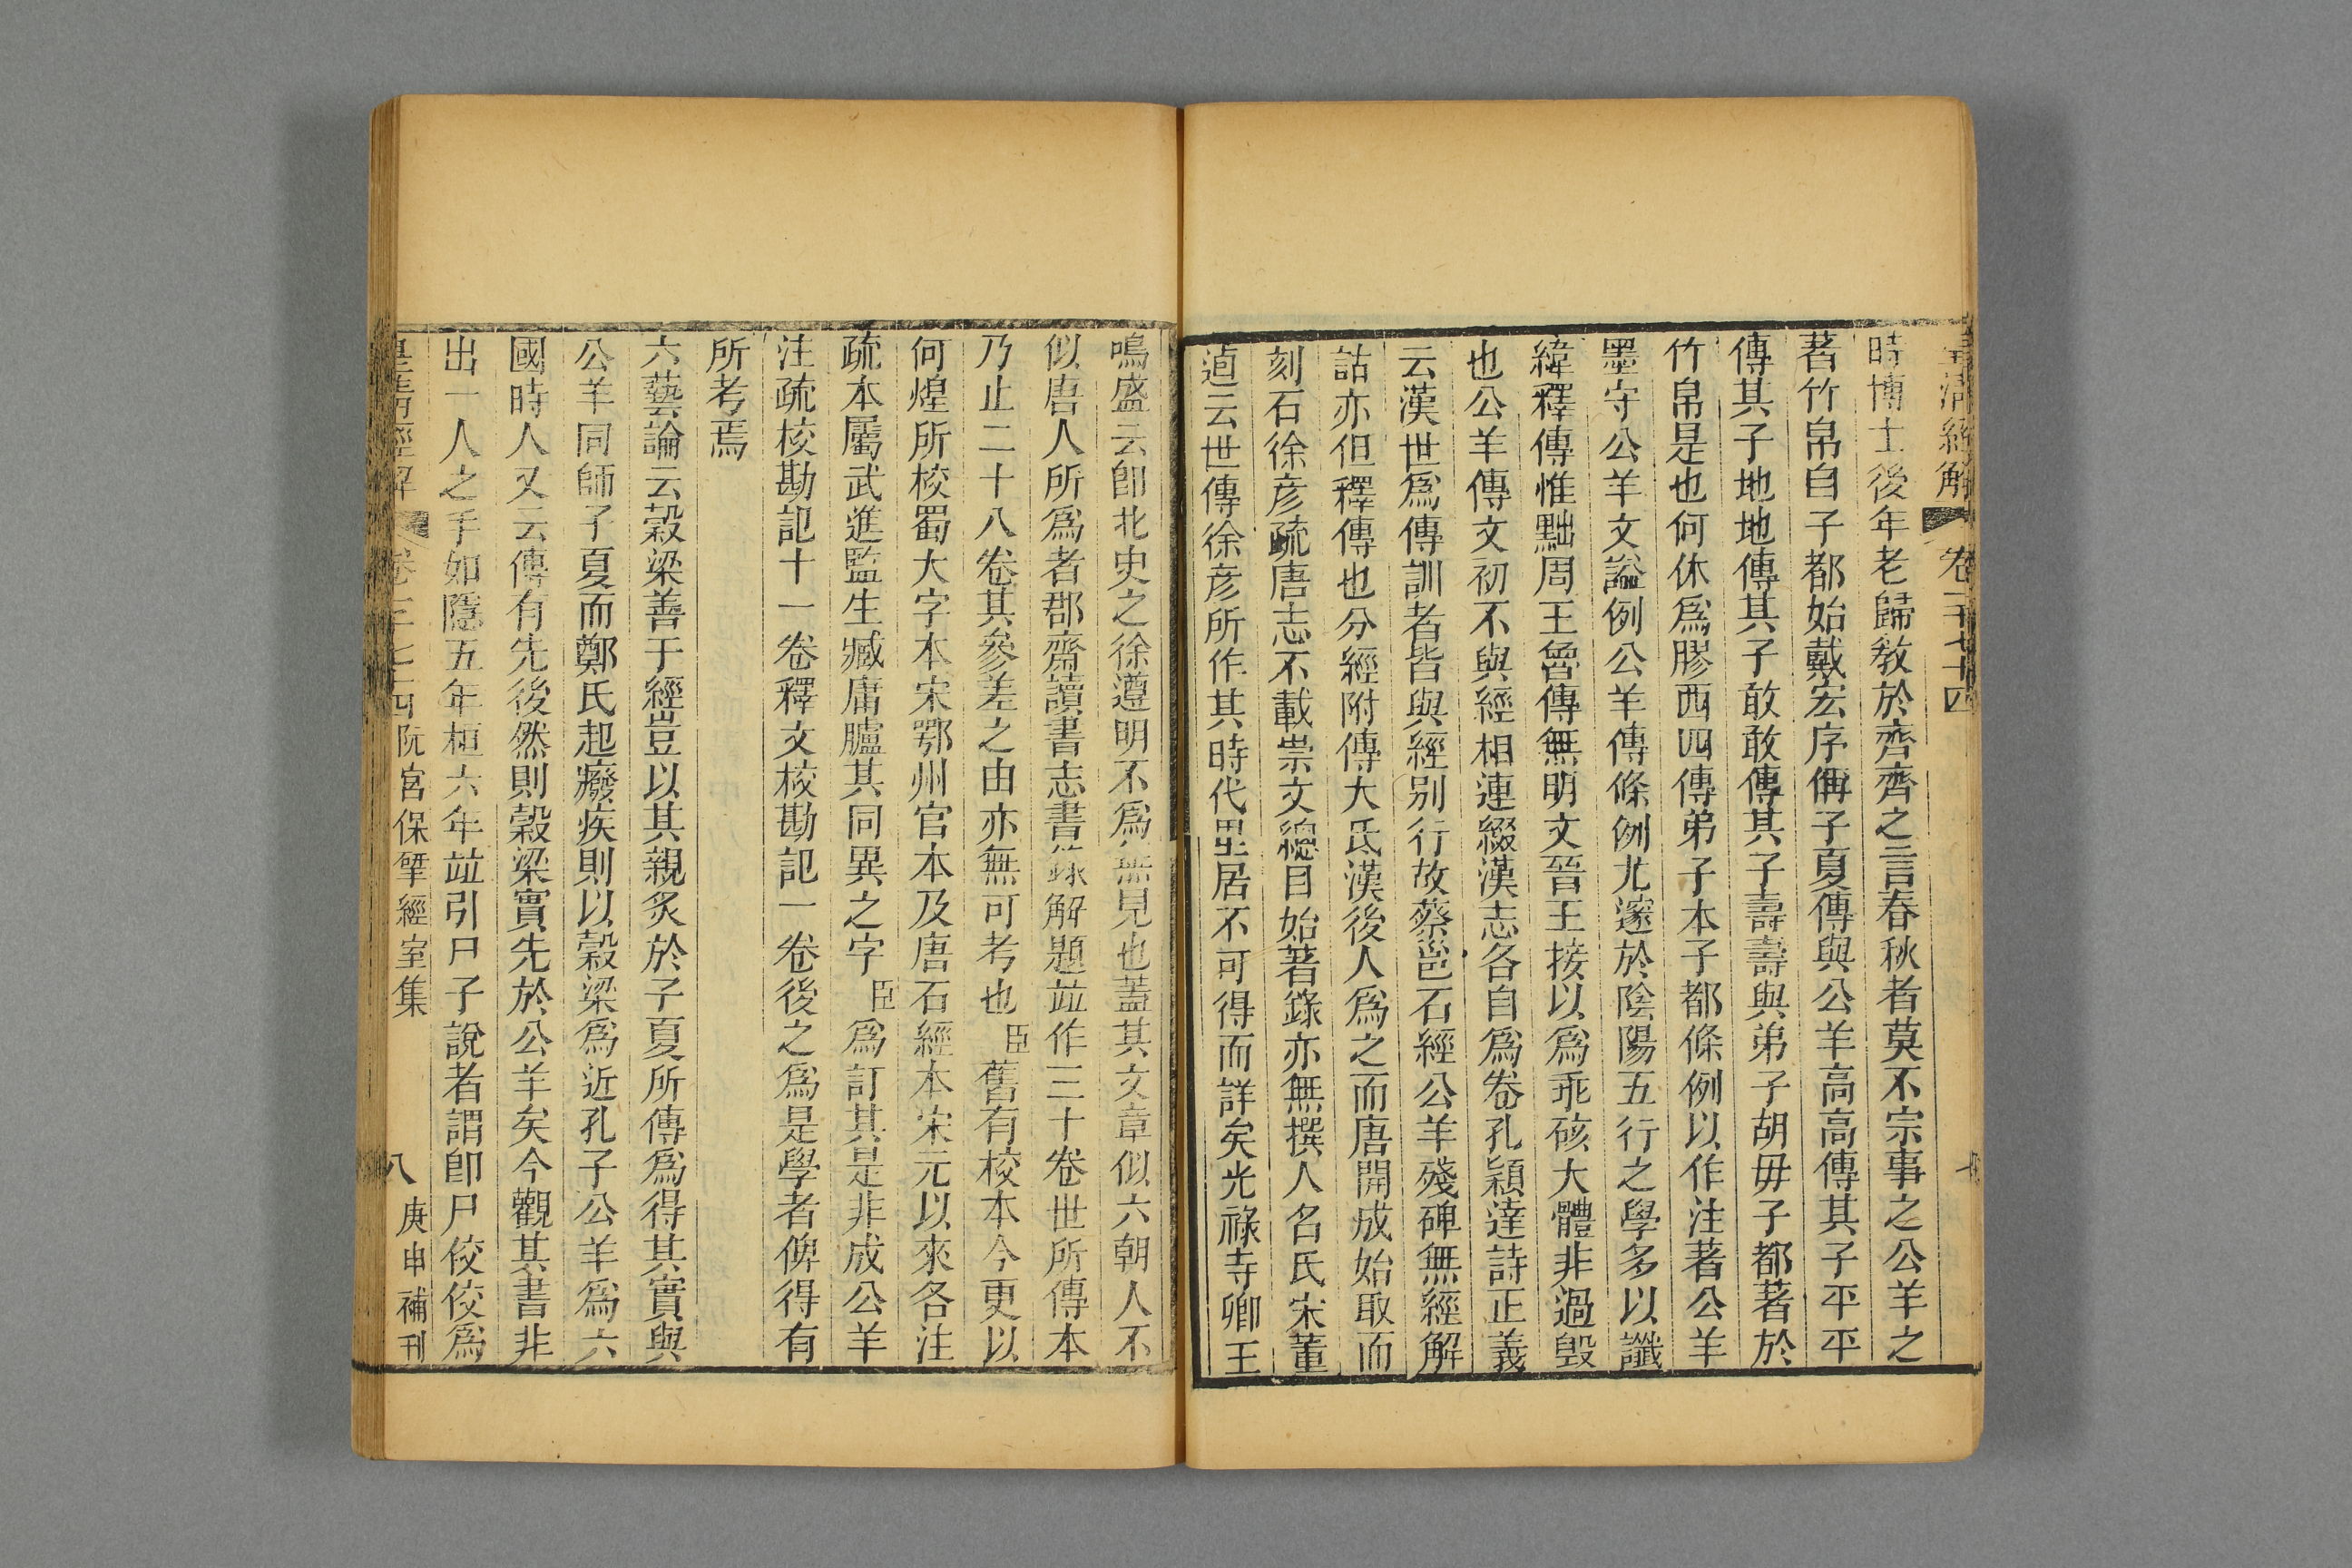 皇清經解 卷一千七十四
時博士後年老歸敎於齊齊之言春秋者莫不宗事之公羊之
著竹帛自子都始戴宏序偁子夏傳與公羊高高傳其子平平
傳其子地地傳其子敢敢傳其子壽壽與弟子胡毋子都著於
竹帛是也何休爲膠西四傳弟子本子都條例以作注著公羊
墨守公羊文謚例公羊傳條例尤邃於陰陽五行之學多以讖
緯釋傳惟黜周王魯傳無明文晉王接以爲乖硋大體非過毁
也公羊傳文初不與經相連綴漢志各自爲卷孔穎達詩正義
云漢世爲傳訓者皆與經别行故蔡邕石經公羊殘碑無經解
詁亦但釋傳也分經附傳大氐漢後人爲之而唐開成始取而
刻石徐彦疏唐志不載崇文總目始著錄亦無撰人名氏宋董
逌云世傳徐彦所作其時代里居不可得而詳矣光祿寺卿王
鳴盛云卽北史之徐遵明不爲無見也蓋其文章似六朝人不
似唐人所爲者郡齋讀書志書錄解題竝作三十卷世所傳本
乃止二十八卷其參差之由亦無可考也臣舊有校本今更以
何煌所校蜀大字本宋鄂州官本及唐石經本宋元以來各注
疏本屬武進監生臧庸臚其同異之字臣爲訂其是非成公羊
注疏校勘記十一卷釋文校勘記一卷後之爲是學者俾得有
所考焉
六藝論云穀梁善于經豈以其親炙於子夏所傳爲得其實與
公羊同師子夏而鄭氏起癈疾則以穀梁爲近孔子公羊爲六
國時人又云傳有先後然則穀梁實先於公羊矣今觀其書非
出一人之手如隱五年桓六年竝引尸子說者謂卽尸佼佼爲
皇清經解 卷一千七十四 阮宮保揅經室集 八 庚申補刊